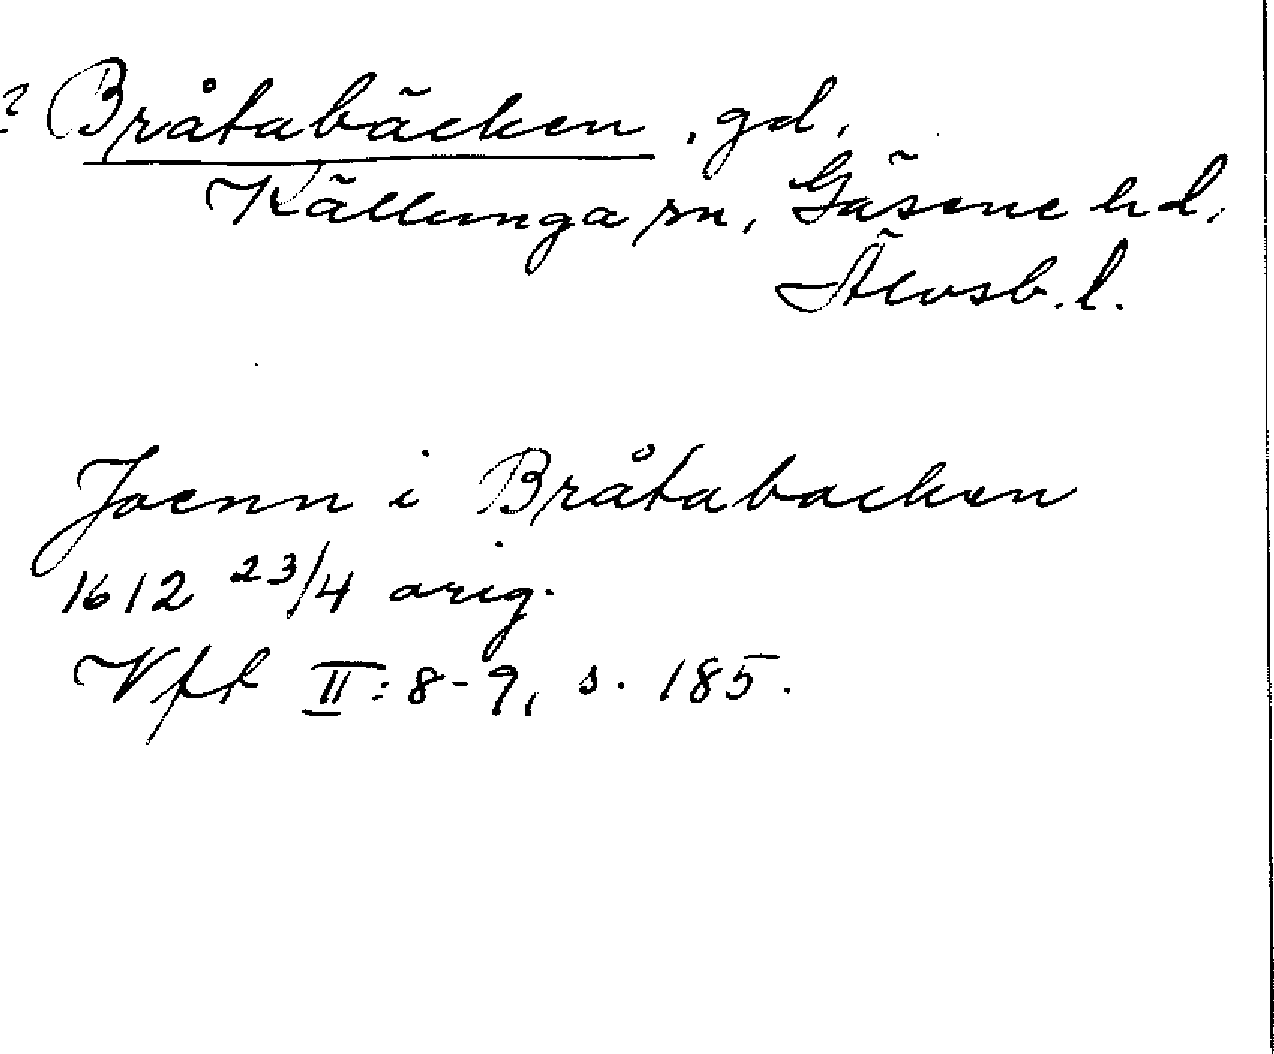 ? Bråtabäcken, gd,
Källunga sn, Gäsene hd,
Älvsb. l.
Joenn i Bråtabacken
1612 23/4 orig.
Vft II: 8-9, s. 185.